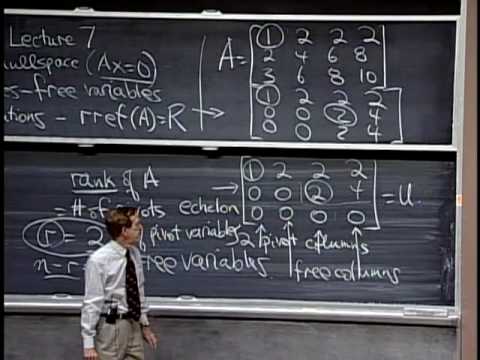 Lecture 7
nullspace (Ax=0)
es-free variables
ations - rref(A)=R
A= 1 2 2 2
2 4 6 8
3 6 8 10
→ 1 2 2 2
0 0 2 4
0 0 2 4
rank of A
= # of pivots
r = 2 # of pivot variables
n-r = free variables
→ 1 2 2 2
0 0 2 4
0 0 0 0
= U
echelon
2 pivot columns
free columns